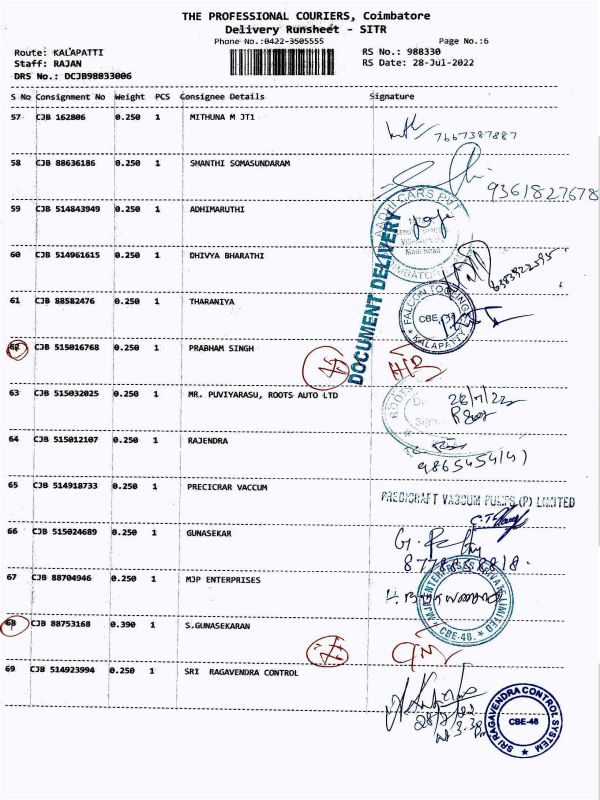 THE PROFESSIONAL COURIERS, Coimbatore
Delivery Runsheet - SITR
Phone No.:0422-3505555 Page No.:6
Route: KALAPATTI RS No.: 988330
Staff: RAJAN RS Date: 28-Jul-2022
DRS No.: DCJB98833006
S No Consignment No Weight PCS Consignee Details Signature
57 CJB 162806 0.250 1 MITHUNA M JT1
7667387887
58 CJB 88636186 0.250 1 SMANTHI SOMASUNDARAM
9361827678
59 CJB 514843949 0.250 1 ADHIMARUTHI
AADHI CARS PVT
Main Road
COIMBATORE
DOCUMENT DELIVERY
60 CJB 514961615 0.250 1 DHIVYA BHARATHI
6383922595
61 CJB 88582476 0.250 1 THARANIYA
FALCON TOOLINGS
CBE-
KALAPATTI
62 CJB 515016768 0.250 1 PRABHAM SINGH
63 CJB 515032025 0.250 1 MR. PUVIYARASU, ROOTS AUTO LTD
ROOTS
28/7/22
64 CJB 515012107 0.250 1 RAJENDRA
65 CJB 514918733 0.250 1 PRECICRAR VACCUM
PRECICRAFT VACUUM PUMPS (P) LIMITED
66 CJB 515024689 0.250 1 GUNASEKAR
67 CJB 88704946 0.250 1 MJP ENTERPRISES
ENTERPRISES PRIVATE LIMITED
CBE-48.
68 CJB 88753168 0.390 1 S.GUNASEKARAN
69 CJB 514923994 0.250 1 SRI RAGAVENDRA CONTROL
SRI RAGAVENDRA CONTROL SYSTEM
CBE-48